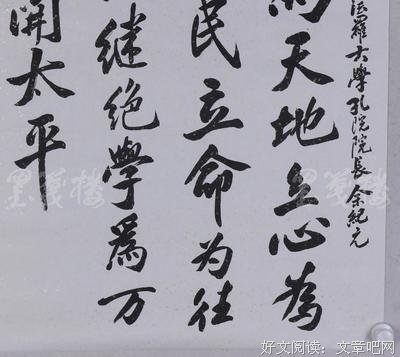 法羅大學孔院院長余紀元
為天地立心為
民立命为往
继绝學爲万
開太平
墨笺楼
墨笺楼
好文阅读：文章吧网